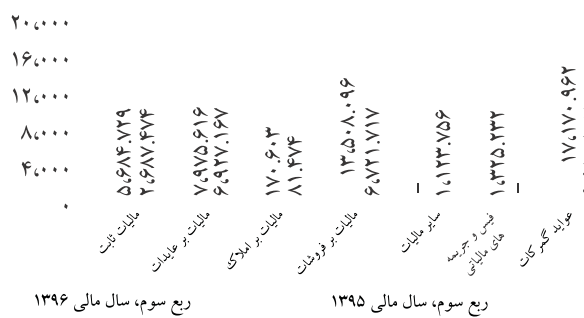 ۲۰,۰۰۰
۱۶,۰۰۰
۱۲,۰۰۰
۸,۰۰۰
۴,۰۰۰
۰
۵,۶۸۴.۷۲۹
۲,۶۸۷.۴۷۴
۷,۹۷۵.۶۱۶
۶,۹۲۷.۱۶۷
۱۷۰.۶۰۳
۸۱.۴۷۴
۱۳,۵۰۸.۰۹۶
۶,۷۲۱.۷۱۷
–
۱,۱۲۳.۷۵۶
۱,۳۲۵.۲۳۲
–
۱۷,۱۷۰.۹۶۲
مالیات ثابت
مالیات بر عایدات
مالیات بر املاک
مالیات بر فروشات
سایر مالیات
فیس و جریمه
های مالیاتی
عواید گمرکات
ربع سوم، سال مالی ۱۳۹۵
ربع سوم، سال مالی ۱۳۹۶